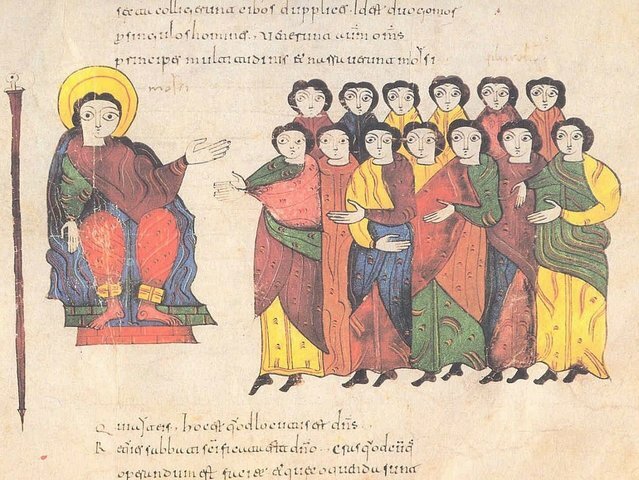 colligerunt cibos dupplices. Id est duo gomor
singulos homines. Venerunt autm oms
principes multitudinis et narraverunt mosi
mosi
Qui ait eis, hoc est quod locutus est dns
Requies sabbati scificata est dno. cras
operandum est facite et que coquenda sunt